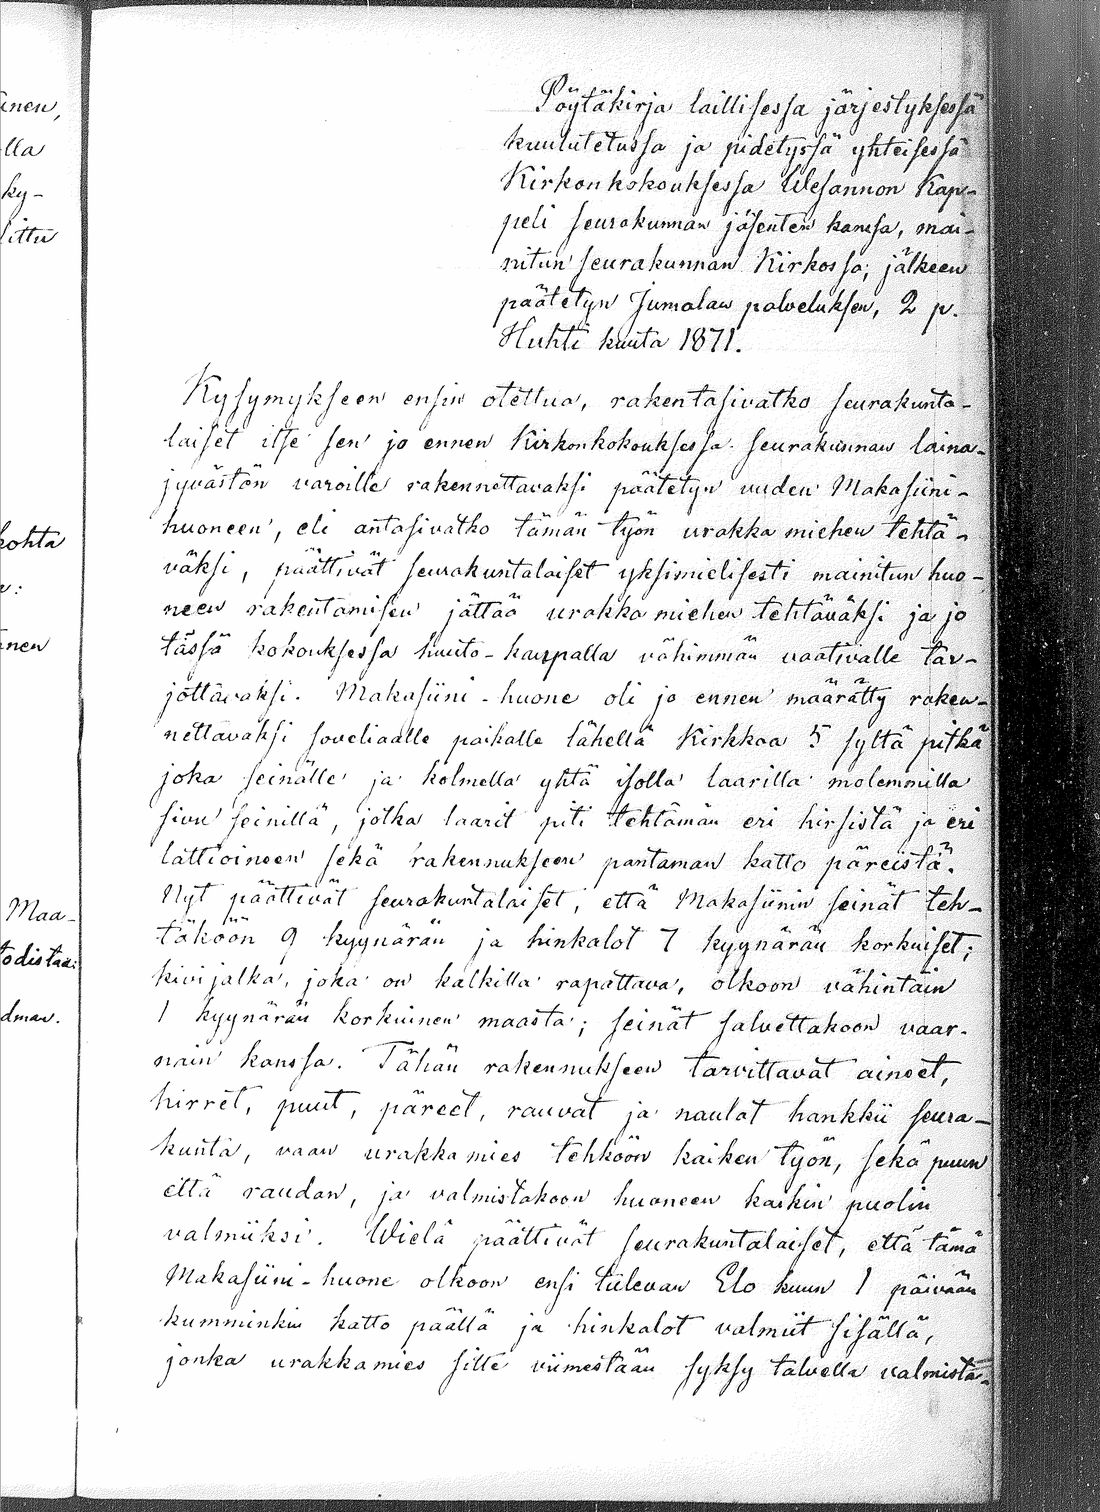 inen,
lla
ky-
sittu
kohta
n:
nen
Maa-
todistaa:
dman.
Pöytäkirja laillisessa järjestyksessä
kuulutetussa ja pidetyssä yhteisessä
Kirkonkokouksessa Wesannon Kap-
peli seurakunnan jäsenten kanssa, mai-
nitun seurakunnan Kirkossa, jälkeen
päätetyn Jumalan palveluksen, 2 p.
Huhti kuuta 1871.
Kysymykseen ensin otettua, rakentasivatko seurakunta-
laiset itse sen jo ennen Kirkonkokouksessa seurakunnan laina-
jyvästön varoille rakennettavaksi päätetyn uuden Makasiini-
huoneen, eli antasivatko tämän työn urakka miehen tehtä-
väksi, päättivät seurakuntalaiset yksimielisesti mainitun huo-
neen rakentamisen jättää urakka miehen tehtäväksi ja jo
tässä kokouksessa huuto-kaupalla vähimmän vaativalle tar-
jottavaksi. Makasiini-huone oli jo ennen määrätty raken-
nettavaksi soveliaalle paikalle lähellä Kirkkoa 5 syltä pitkä
joka seinälle ja kolmella yhtä isolla laarilla molemmilla
sivu seinillä, jotka laarit piti tehtämän eri hirsistä ja eri
lattioineen sekä rakennukseen pantaman katto päreistä.
Nyt päättivät seurakuntalaiset, että Makasiinin seinät teh-
täköön 9 kyynärän ja hinkalot 7 kyynärän korkuiset;
kivijalka, joka on kalkilla rapattava, olkoon vähintäin
1 kyynärän korkuinen maasta; seinät salvettakoon vaar-
nain kanssa. Tähän rakennukseen tarvittavat aineet,
hirret, puut, päreet, rauvat ja naulat hankkii seura-
kunta, vaan urakka mies tehköön kaiken työn, sekä puun
että raudan, ja valmistakoon huoneen kaikin puolin
valmiiksi. Wielä päättivät seurakuntalaiset, että tämä
Makasiini-huone olkoon ensi tulevan Elo kuun 1 päivään
kumminkin katto päällä ja hinkalot valmiit sisällä,
jonka urakkamies sitte viimestään syksy talvella valmista-